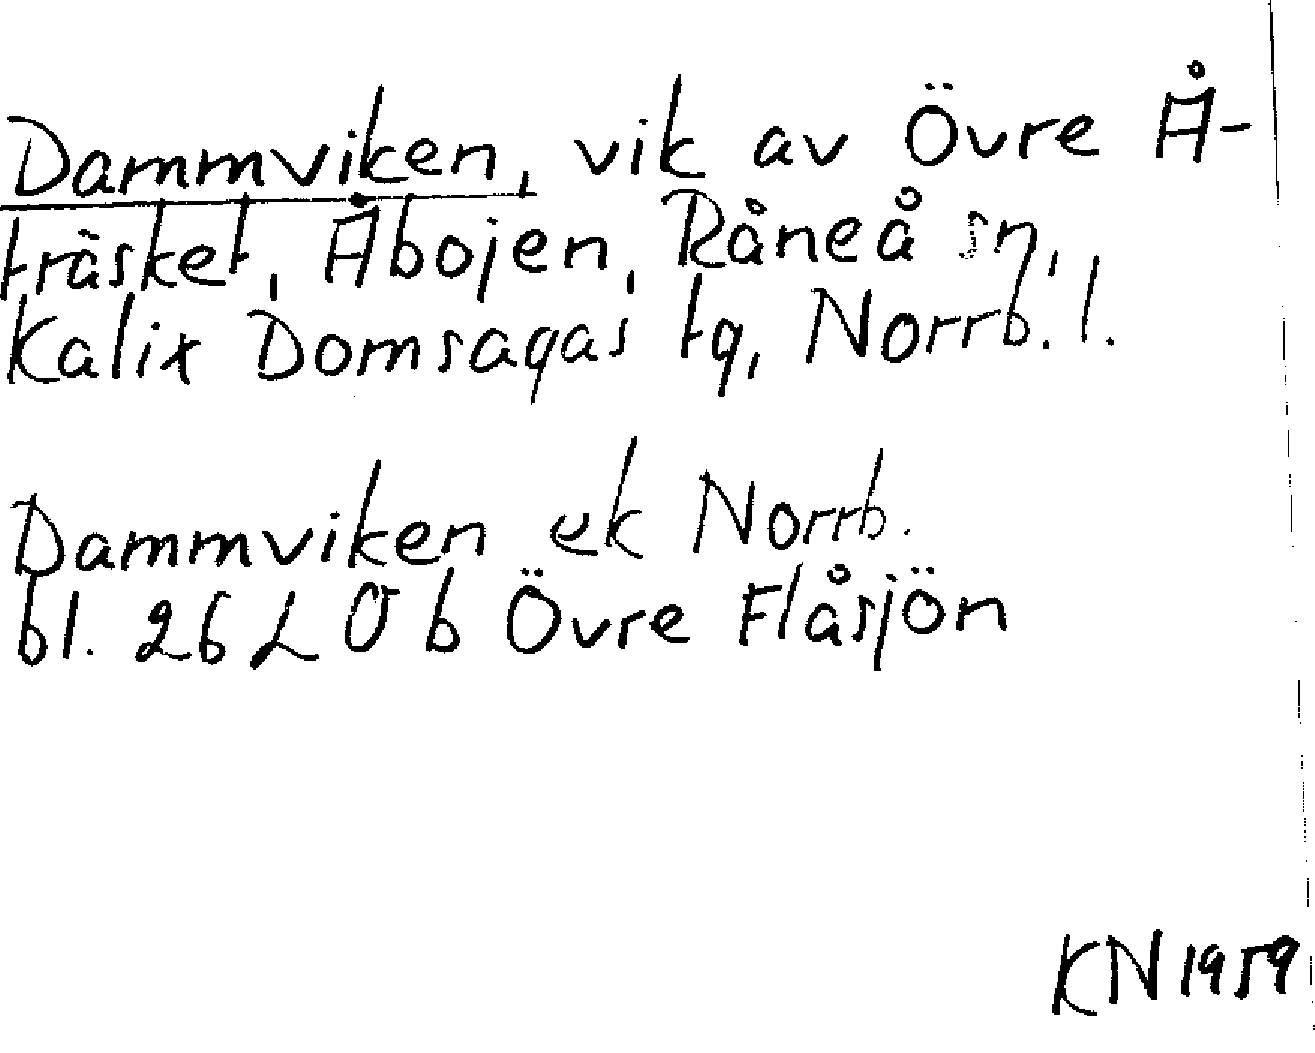 Dammviken, vik av Övre Å-
träsket, Åbojen, Råneå sn,
Kalix Domsagas tg, Norrb. l.
Dammviken ek Norrb.
bl. 26 L 0 b Övre Flåsjön
KN 1959